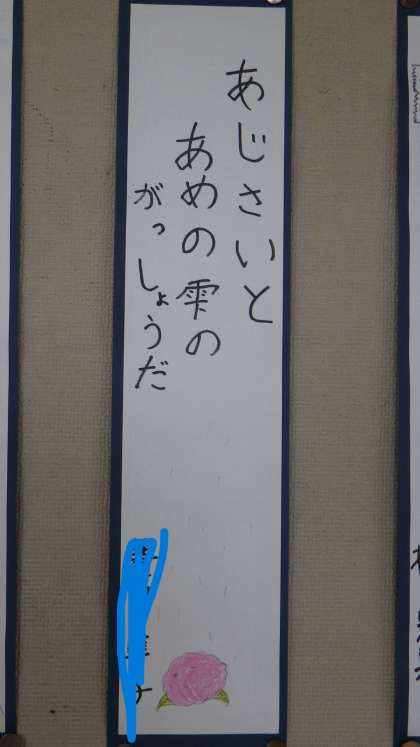 あじさいと
あめの雫の
がっしょうだ